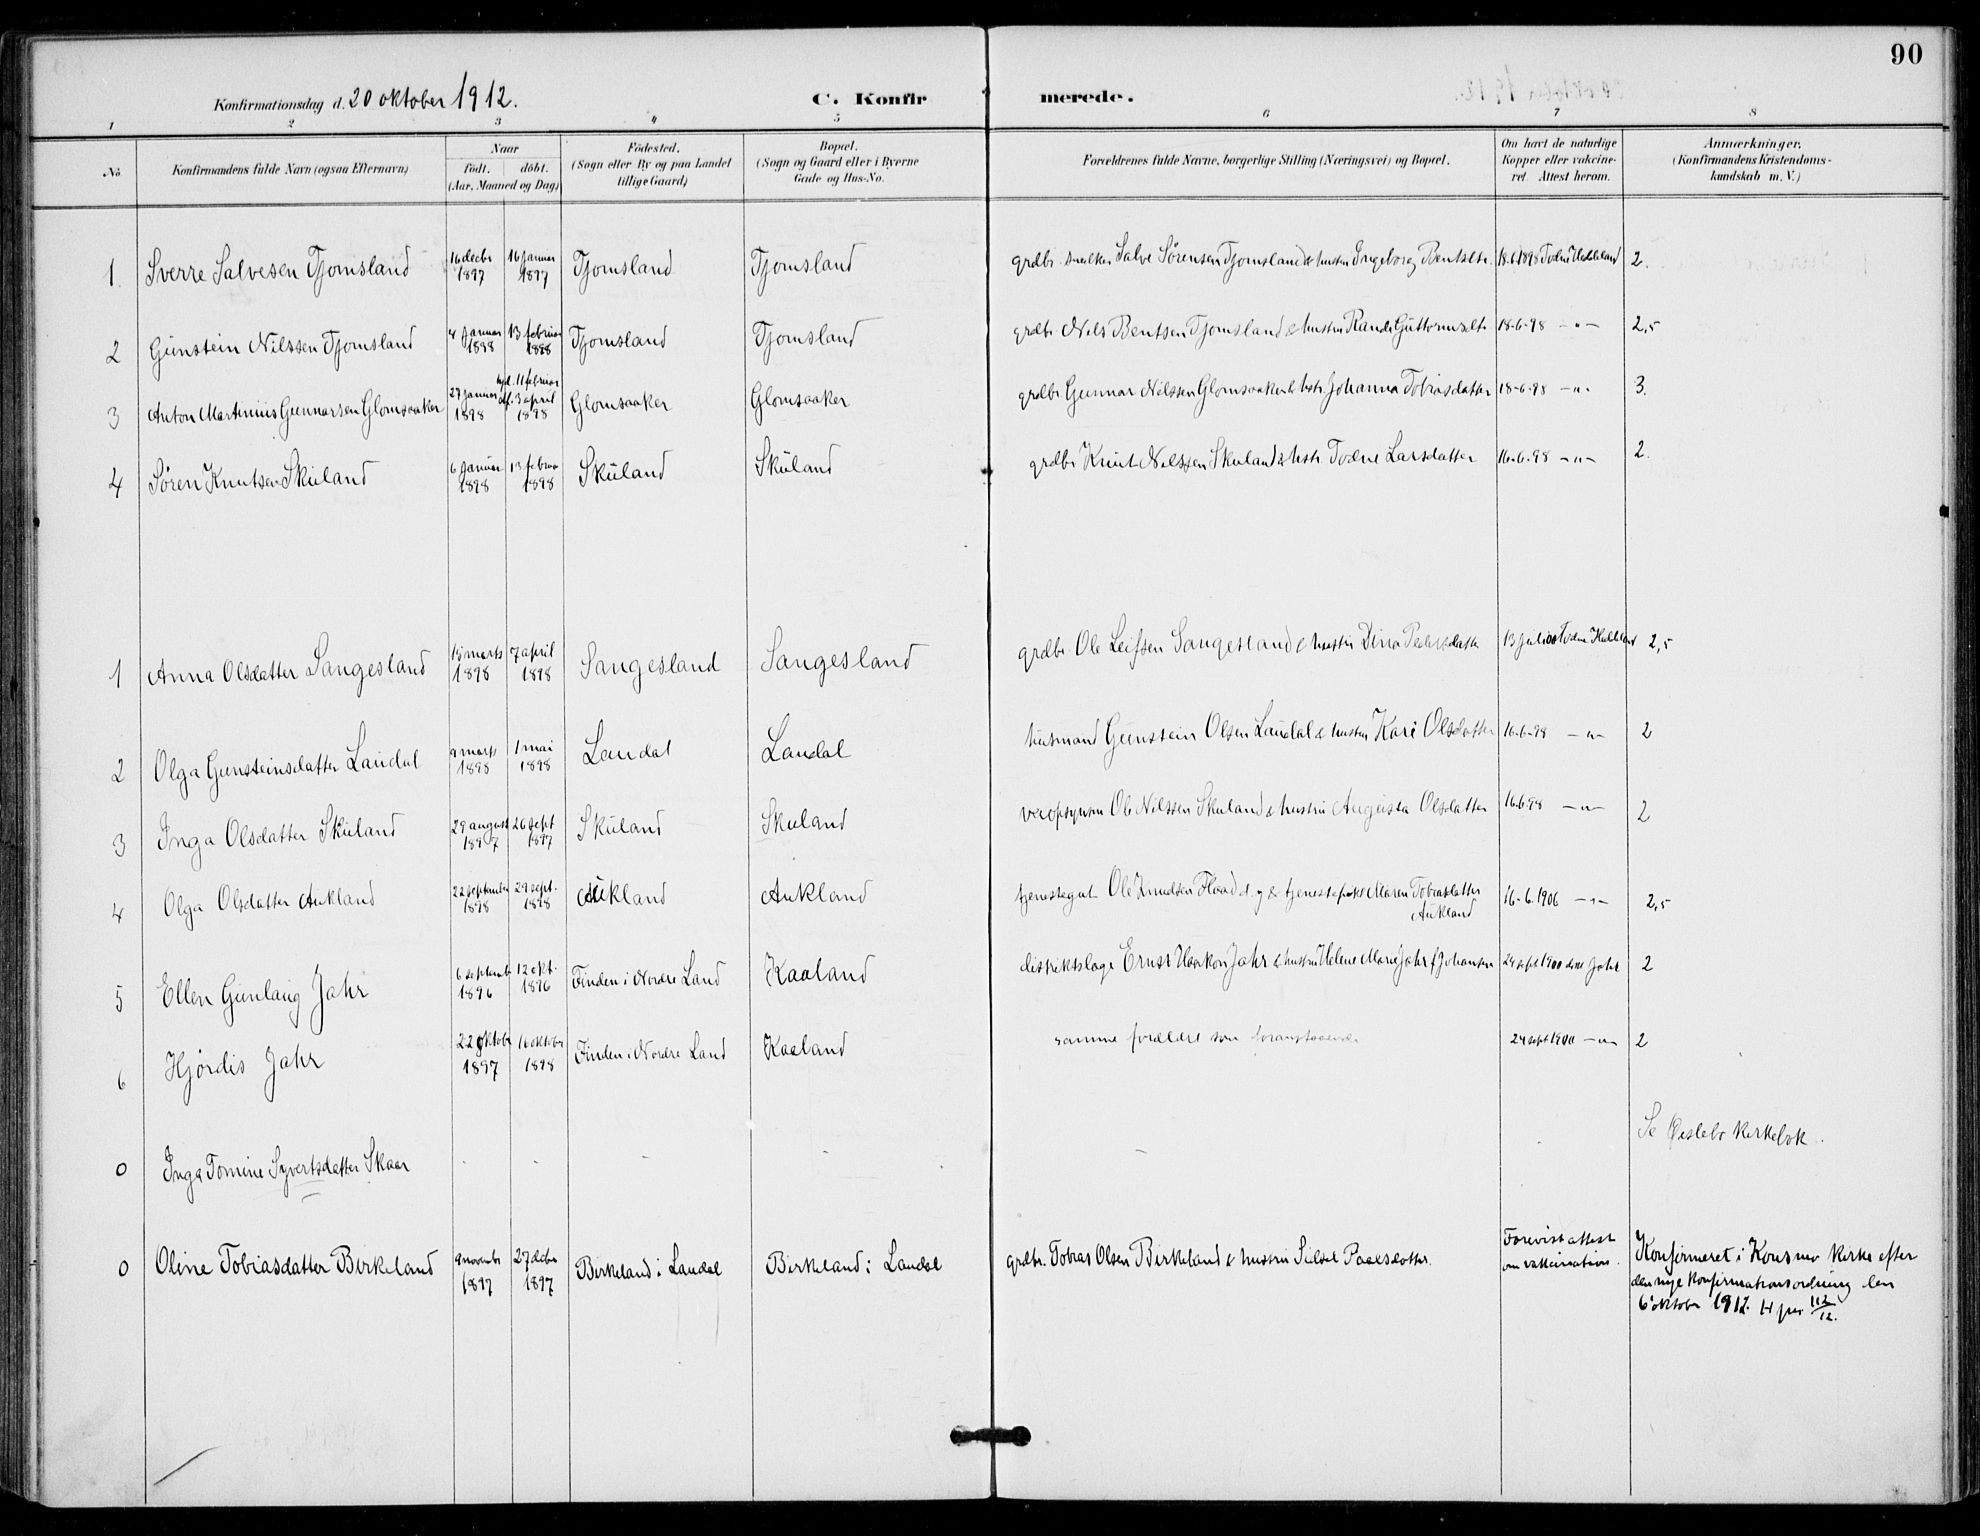 90
Konfirmationsdag d. 20 oktober 1912.
C. Konfirmerede.
1 2 3 4 5 6 7 8
No.
Konfirmandens fulde Navn (ogsaa Efternavn)
Naar
födt. döbt.
(Aar, Maaned og Dag)
Födested.
(Sogn eller By og paa Landet
tillige Gaard)
Bopæl.
(Sogn og Gaard eller i Byerne
Gade og Hus-No.
Forældrenes fulde Navne, borgerlige Stilling (Næringsvei) og Bopæl.
Om havt de naturlige
Kopper eller vakcine-
ret. Attest herom.
Anmærkninger.
(Konfirmandens Kristendoms-
kundskab m. V.)
1 Sverre Salvesen Tjomsland 16 decbr 1897 16 januar 1897 Tjomsland Tjomsland grdbr. Salve Sörensen Tjomsland & hustru Ingeborg Bentsdtr. 18.6.1898 2.
2 Gunstein Nilssen Tjomsland 4 januar 1898 13 februar 1898 Tjomsland Tjomsland grdbr Nils Bentsen Tjomsland & hustru Randi Guttormsdtr 18-6-98 -"- 2,5
3 Anton Martinius Gunnarsen Glomsaaker 27 januar 1898 hjd. 11 februar 3 april 1898 Glomsaaker Glomsaaker grdbr. Gunnar Nilssen Glomsaaker & hstr. Johanna Tobiasdatter 18-6-98 -"- 3.
4 Sören Knutsen Skuland 6 januar 1898 13 februar 1898 Skuland Skuland grdbr Knut Nilssen Skuland & hstr. Todne Larsdatter 16-6-98 -"- 2.
1 Anna Olsdatter Sangesland 15 marts 1898 7 april 1898 Sangesland Sangesland grdbr. Ole Leifsen Sangesland & hustru Dina Pedersdatter 13 juli 2,5
2 Olga Gunsteinsdatter Laudal 9 marts 1898 1 mai 1898 Laudal Laudal husmand Gunstein Olsen Laudal & hustru Kari Olsdatter 16-6-98 -"- 2
3 Inga Olsdatter Skuland 29 august 1897 26 sept 1897 Skuland Skuland veiopsynsm Ole Nilssen Skuland & hustru Augusta Olsdatter 16.6.98 -"- 2
4 Olga Olsdatter Aukland 22 september 1898 29 sept. 1898 Aukland Aukland tjenestegut Ole Knudsen Flaad d.y. & tjenestepike Maren Tobiasdatter
Aukland 16-6.1906 -"- 2,5
5 Ellen Gunlaug Jahr 6 septembr 1896 12 okt. 1896 Finden i Nordre Land Kaaland distriktslæge Ernst Haakon Jahr & hustru Helene Marie Jahr f. Johansen 24 sept 1900 Jahr 2
6 Hjördis Jahr 22 oktobr 1897 16 oktober 1898 Finden i Nordre Land Kaaland samme forældre som foranstaaende 24 sept 1900 -"- 2
0 Inga Tomine Syvertsdatter Skaar - - - - - - Se Øislebø kirkebok.
0 Oline Tobiasdatter Birkeland 9 novembr 1897 27 decbr 1897 Birkeland i Laudal Birkeland i Laudal grdbr. Tobias Olsen Birkeland & hustru Sidsel Paalsdatter. Forevist attest
om vaksination.
Konfirmeret i Konsmo kirke efter
den nye konfirmationsordning den
6 oktober 1912. 112/12.